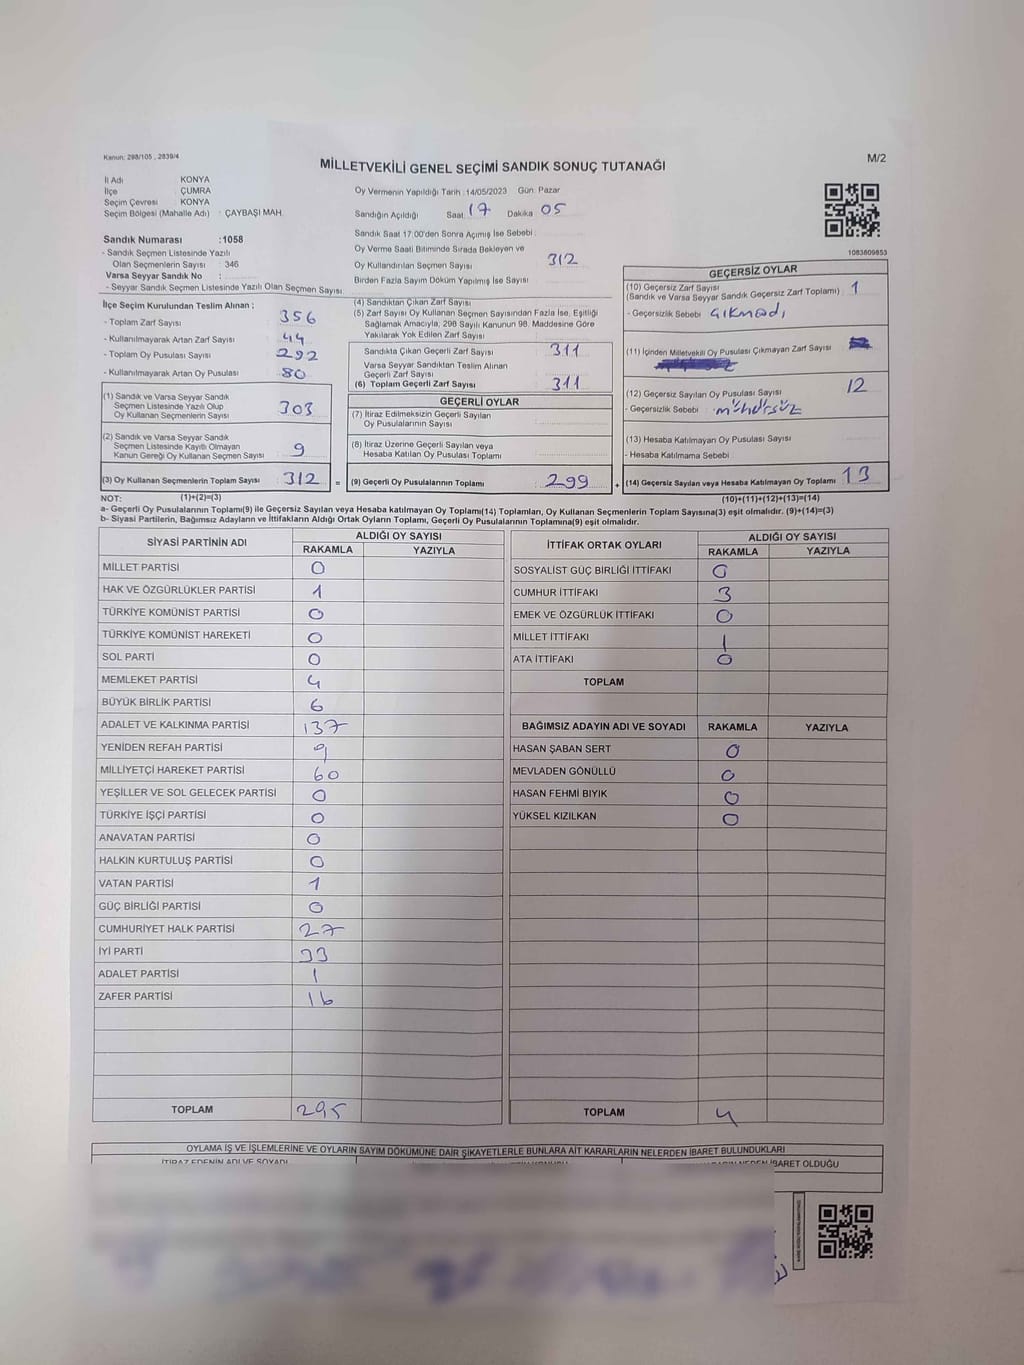 Kanun: 298/105 , 2839/4
MİLLETVEKİLİ GENEL SEÇİMİ SANDIK SONUÇ TUTANAĞI
M/2
İl Adı KONYA
İlçe ÇUMRA
Seçim Çevresi KONYA
Seçim Bölgesi (Mahalle Adı) : ÇAYBAŞI MAH.
Sandık Numarası :1058
- Sandık Seçmen Listesinde Yazılı
Olan Seçmenlerin Sayısı : 346
Varsa Seyyar Sandık No :
- Seyyar Sandık Seçmen Listesinde Yazılı Olan Seçmen Sayısı:
Oy Vermenin Yapıldığı Tarih :14/05/2023 Gün: Pazar
Sandığın Açıldığı Saat 17 Dakika 05
Sandık Saat 17.00'den Sonra Açımış İse Sebebi :
Oy Verme Saati Bitiminde Sırada Bekleyen ve
Oy Kullandırılan Seçmen Sayısı 312
Birden Fazla Sayım Döküm Yapılmış İse Sayısı
1083609853
İlçe Seçim Kurulundan Teslim Alınan ;
- Toplam Zarf Sayısı : 356
- Kullanılmayarak Artan Zarf Sayısı : 44
- Toplam Oy Pusulası Sayısı : 292
- Kullanılmayarak Artan Oy Pusulası : 80
(1) Sandık ve Varsa Seyyar Sandık
Seçmen Listesinde Yazılı Olup
Oy Kullanan Seçmenlerin Sayısı 303
(2) Sandık ve Varsa Seyyar Sandık
Seçmen Listesinde Kayıtlı Olmayan
Kanun Gereği Oy Kullanan Seçmen Sayısı 9
(3) Oy Kullanan Seçmenlerin Toplam Sayısı 312 =
(4) Sandıktan Çıkan Zarf Sayısı
(5) Zarf Sayısı Oy Kullanan Seçmen Sayısından Fazla İse, Eşitliği
Sağlamak Amacıyla, 298 Sayılı Kanunun 98. Maddesine Göre
Yakılarak Yok Edilen Zarf Sayısı
Sandıkta Çıkan Geçerli Zarf Sayısı 311
Varsa Seyyar Sandıktan Teslim Alınan
Geçerli Zarf Sayısı
(6) Toplam Geçerli Zarf Sayısı 311
GEÇERLİ OYLAR
(7) İtiraz Edilmeksizin Geçerli Sayılan
Oy Pusulalarının Sayısı
(8) İtiraz Üzerine Geçerli Sayılan veya
Hesaba Katılan Oy Pusulası Toplamı
(9) Geçerli Oy Pusulalarının Toplamı 299 +
GEÇERSİZ OYLAR
(10) Geçersiz Zarf Sayısı
(Sandık ve Varsa Seyyar Sandık Geçersiz Zarf Toplamı) 1
- Geçersizlik Sebebi Çıkmadı
(11) İçinden Milletvekili Oy Pusulası Çıkmayan Zarf Sayısı
(12) Geçersiz Sayılan Oy Pusulası Sayısı 12
- Geçersizlik Sebebi : mühürsüz
(13) Hesaba Katılmayan Oy Pusulası Sayısı
- Hesaba Katılmama Sebebi
(14) Geçersiz Sayılan veya Hesaba Katılmayan Oy Toplamı 13
NOT: (1)+(2)=(3) (10)+(11)+(12)+(13)=(14)
a- Geçerli Oy Pusulalarının Toplamı(9) ile Geçersiz Sayılan veya Hesaba Katılmayan Oy Toplamı(14) Toplamları, Oy Kullanan Seçmenlerin Toplam Sayısına(3) eşit olmalıdır. (9)+(14)=(3)
b- Siyasi Partilerin, Bağımsız Adayların ve İttifakların Aldığı Ortak Oyların Toplamı, Geçerli Oy Pusulalarının Toplamına(9) eşit olmalıdır.
SİYASİ PARTİNİN ADI ALDIĞI OY SAYISI
RAKAMLA YAZIYLA
MİLLET PARTİSİ 0
HAK VE ÖZGÜRLÜKLER PARTİSİ 1
TÜRKİYE KOMÜNİST PARTİSİ 0
TÜRKİYE KOMÜNİST HAREKETİ 0
SOL PARTİ 0
MEMLEKET PARTİSİ 4
BÜYÜK BİRLİK PARTİSİ 6
ADALET VE KALKINMA PARTİSİ 137
YENİDEN REFAH PARTİSİ 9
MİLLİYETÇİ HAREKET PARTİSİ 60
YEŞİLLER VE SOL GELECEK PARTİSİ 0
TÜRKİYE İŞÇİ PARTİSİ 0
ANAVATAN PARTİSİ 0
HALKIN KURTULUŞ PARTİSİ 0
VATAN PARTİSİ 1
GÜÇ BİRLİĞİ PARTİSİ 0
CUMHURİYET HALK PARTİSİ 27
İYİ PARTİ 33
ADALET PARTİSİ 1
ZAFER PARTİSİ 16
TOPLAM 295
İTTİFAK ORTAK OYLARI ALDIĞI OY SAYISI
RAKAMLA YAZIYLA
SOSYALİST GÜÇ BİRLİĞİ İTTİFAKI 0
CUMHUR İTTİFAKI 3
EMEK VE ÖZGÜRLÜK İTTİFAKI 0
MİLLET İTTİFAKI 1
ATA İTTİFAKI 0
TOPLAM
BAĞIMSIZ ADAYIN ADI VE SOYADI RAKAMLA YAZIYLA
HASAN ŞABAN SERT 0
MEVLADEN GÖNÜLLÜ 0
HASAN FEHMİ BIYIK 0
YÜKSEL KIZILKAN 0
TOPLAM 4
OYLAMA İŞ VE İŞLEMLERİNE VE OYLARIN SAYIM DÖKÜMÜNE DAİR ŞİKAYETLERLE BUNLARA AİT KARARLARIN NELERDEN İBARET BULUNDUKLARI
İTİRAZ EDENİN ADI VE SOYADI NEDEN İBARET OLDUĞU